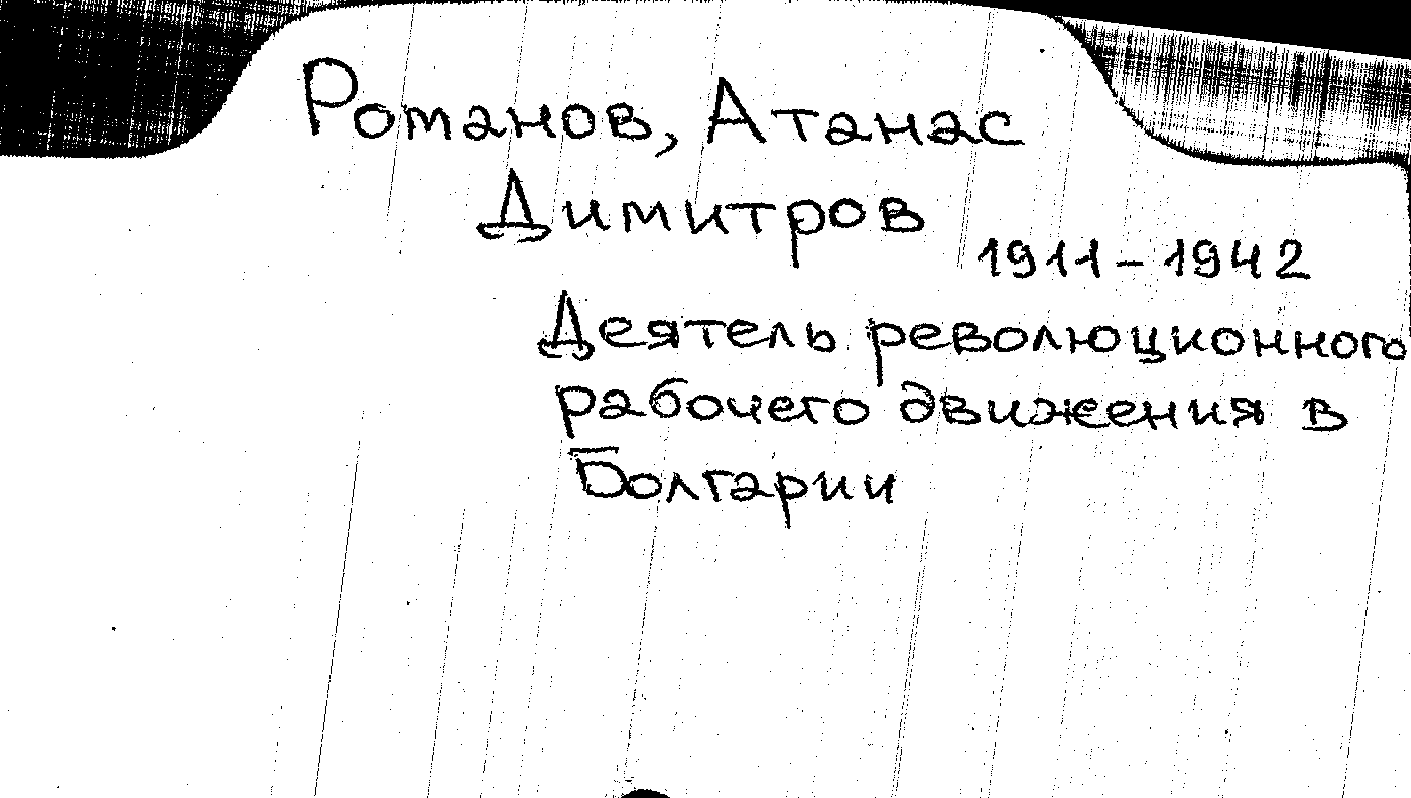 Романов, Атанас
Димитров
1911-1942
Деятель революционного
рабочего движения в
Болгарии